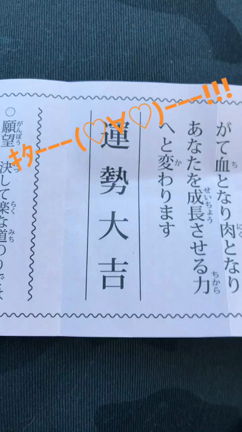 ｷﾀｰｰｰ(♡∀♡)ｰｰｰ!!!
がて血となり肉となり
あなたを成長させる力
へと変わります
運勢大吉
○願望 決して楽な道のりでは